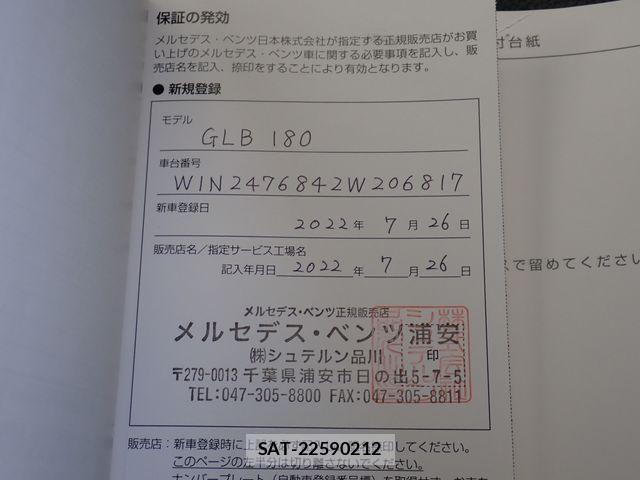 保証の発効
メルセデス・ベンツ日本株式会社が指定する正規販売店がお買
い上げのメルセデス・ベンツ車に関する必要事項を記入し、販
売店名を記入、捺印をすることにより有効となります。
● 新規登録
モデル
GLB 180
車台番号
W1N2476842W206817
新車登録日
2022年 7月 26日
販売店名／指定サービス工場名
記入年月日 2022年 7月 26日
メルセデス・ベンツ正規販売店
メルセデス・ベンツ浦安
㈱シュテルン品川 印
〒279-0013 千葉県浦安市日の出5-7-5
TEL:047-305-8800 FAX:047-305-8811
販売店：新車登録時に してください。
このページの左半分は切り離さないでください。
付台紙
で留めてください
SAT-22590212